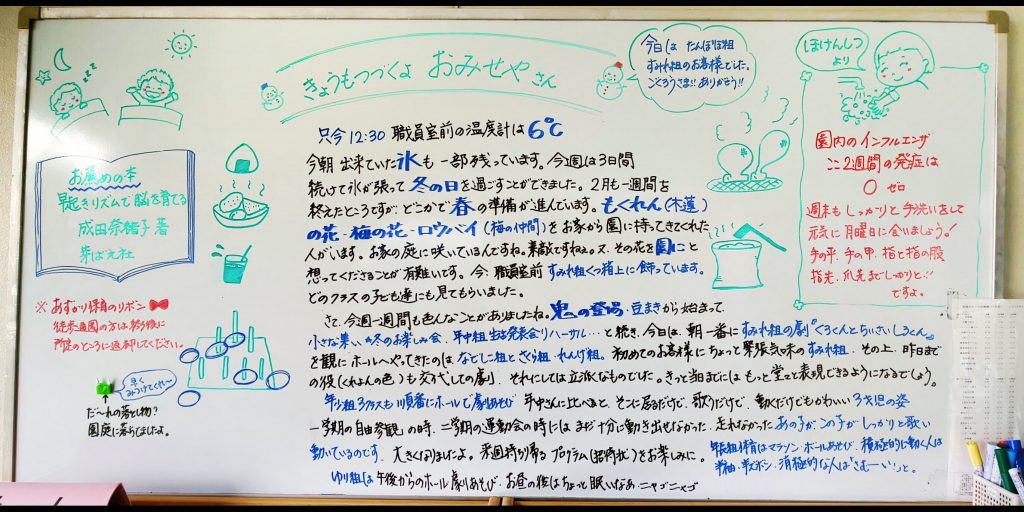 きょうもつづくよ おみせやさん
今日は たんぽぽ組
すみれ組のお客様でした。
ごくろうさま!! ありがとう!!
ほけんしつ
より
園内のインフルエンザ
ここ2週間の発症は
0 ゼロ
週末もしっかりと手洗いをして
元気に月曜日に会いましょう!
手の平、手の甲、指と指の股
指先、爪先までしっかりと!!
ですよ。
お薦めの本
早起きリズムで脳を育てる
成田奈緒子 著
芽ばえ社
※あずかり保育のリボン
徒歩通園の方は
所定のところに返却してください。
早く
みつけてくれ〜
だ〜れの落とし物?
園庭に落ちてましたよ。
只今12:30 職員室前の温度計は6℃
今朝 出来ていた氷も一部残っています。今週は3日間
続けて氷が張って冬の日を過ごすことができました。2月も一週間を
終えたところですが、どこかで春の準備が進んでいます。もくれん(木蓮)
の花・梅の花・ロウバイ(梅の仲間)をお家から園に持ってきてくれた
人がいます。お家の庭に咲いているんですね。素敵ですねぇ。又、その花を園にと
想ってくださることが有難いです。今、職員室前 すみれ組くつ箱上に飾っています。
どのクラスの子ども達にも見てもらいました。
さて、今週一週間も色んなことがありましたね。鬼の登場・豆まきから始まって、
小さな集い 冬のお楽しみ会、年中組 生活発表会リハーサル…と続き、今日は、朝一番にすみれ組の劇"くろくんとちいさいしろくん"
を観にホールへやってきたのは なでしこ組とさくら組・れんげ組。初めてのお客様にちょっと緊張気味のすみれ組、その上、昨日まで
の役(くれよんの色)も交代しての劇、それにしては立派なものでした。きっと当日までには もっと堂々と表現できるようになるでしょう。
年少組3クラスも順番にホールで劇あそび 年中さんに比べると、そこに居るだけで、歌うだけで、動くだけでもかわいい3才児の姿
一学期の自由参観の時、二学期の運動会の時には まだ十分に動き出せなかった、走れなかった あの子が この子が しっかりと歌い
動いているのです。大きくなりましたよ。来週持ち帰る プログラム(招待状)をお楽しみに。
年長組 体育はマラソン・ボールあそび、積極的に動く人は
半袖・半ズボン・消極的な人は「さむーい」っと。
ゆり組は 午後からのホール劇あそび・お昼の後はちょっと眠いなあ ニャゴニャゴ